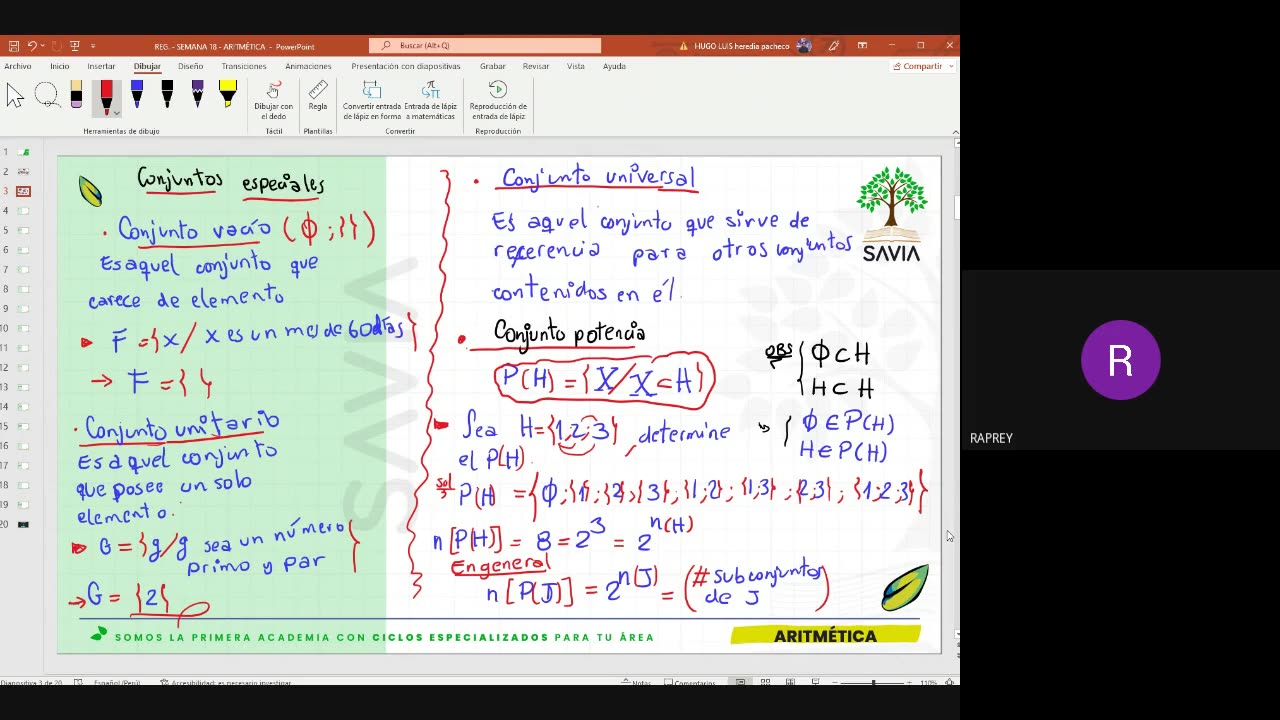 REG. - SEMANA 18 - ARITMÉTICA - PowerPoint
Buscar (Alt+Q)
HUGO LUIS heredia pacheco
Archivo Inicio Insertar Dibujar Diseño Transiciones Animaciones Presentación con diapositivas Grabar Revisar Vista Ayuda
Compartir
Dibujar con el dedo
Regla
Convertir entrada de lápiz en forma
Entrada de lápiz a matemáticas
Reproducción de entrada de lápiz
Herramientas de dibujo
Táctil
Plantillas
Convertir
Reproducción
1
2
3
4
5
6
7
8
9
10
11
12
13
14
15
16
17
18
19
20
Conjuntos especiales
· Conjunto vacío (ϕ ; { })
Es aquel conjunto que
carece de elemento
F = {x / x es un mes de 60 días}
→ F = { }
· Conjunto unitario
Es aquel conjunto
que posee un solo
elemento.
G = {g/g sea un número
primo y par}
→ G = {2}
· Conjunto universal
Es aquel conjunto que sirve de
referencia para otros conjuntos
contenidos en él.
• Conjunto potencia
P(H) = {X/X ⊂ H}
OBS { ϕ ⊂ H
H ⊂ H
Sea H = {1;2;3}, determine
el P(H).
{ ϕ ∈ P(H)
H ∈ P(H)
Sol P(H) = {ϕ; {1}; {2}; {3}; {1;2}; {1;3}; {2;3}; {1;2;3}}
n[P(H)] = 8 = 2^3 = 2^n(H)
En general
n[P(J)] = 2^n(J) = (# subconjuntos
de J)
SAVIA
SAVIA
SOMOS LA PRIMERA ACADEMIA CON CICLOS ESPECIALIZADOS PARA TU ÁREA
ARITMÉTICA
R
RAPREY
Diapositiva 3 de 20 Español (Perú) Accesibilidad: es necesario investigar
Notas Comentarios 110%